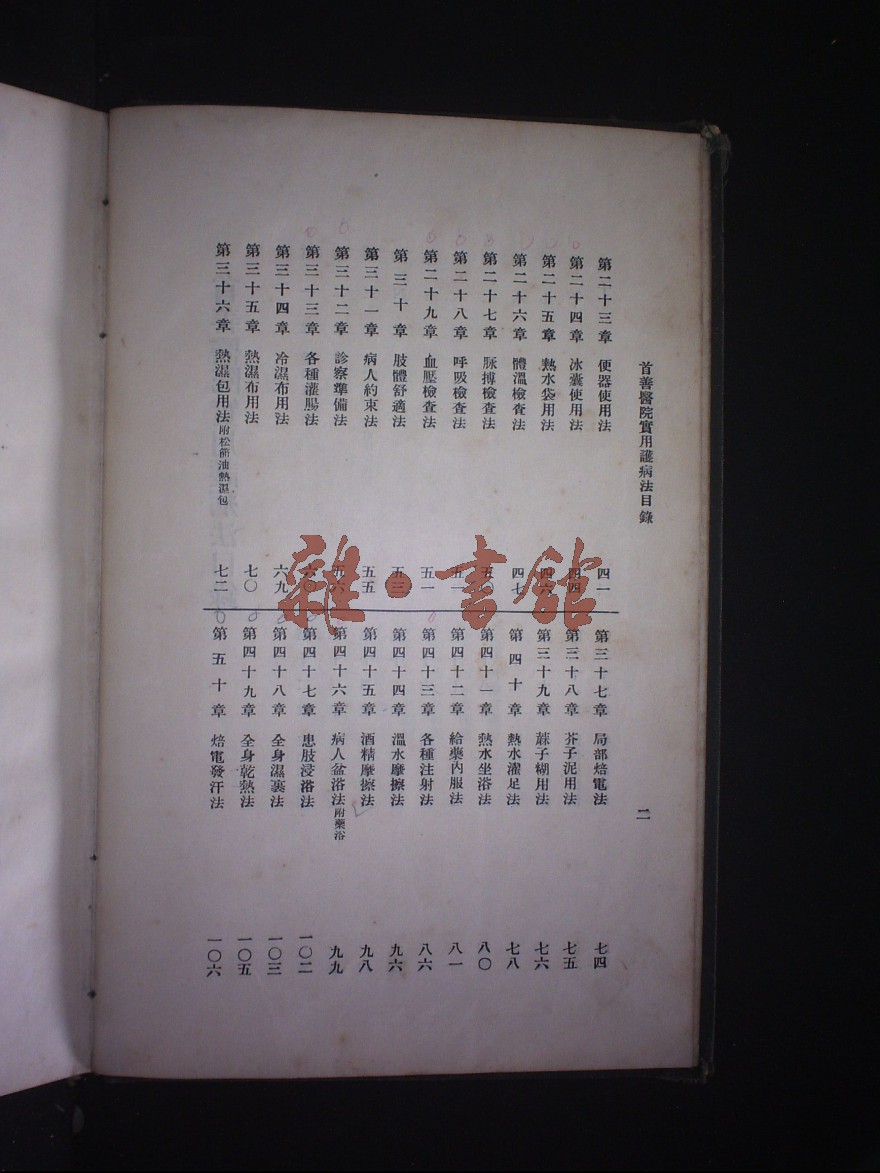 首善醫院實用護病法目錄
二
第二十三章 便器使用法 四一
第二十四章 冰囊使用法 四四
第二十五章 熱水袋用法 四六
第二十六章 體溫檢查法 四七
第二十七章 脈搏檢查法 五〇
第二十八章 呼吸檢查法 五一
第二十九章 血壓檢查法 五一
第三十章 肢體舒適法 五三
第三十一章 病人約束法 五五
第三十二章 診察準備法 五六
第三十三章 各種灌腸法 六〇
第三十四章 冷濕布用法 六九
第三十五章 熱濕布用法 七〇
第三十六章 熱濕包用法附松節油熱濕包 七二
第三十七章 局部焙電法 七四
第三十八章 芥子泥用法 七五
第三十九章 蔴子糊用法 七六
第四十章 熱水灌足法 七八
第四十一章 熱水坐浴法 八〇
第四十二章 給藥內服法 八一
第四十三章 各種注射法 八六
第四十四章 溫水摩擦法 九六
第四十五章 酒精摩擦法 九八
第四十六章 病人盆浴法附藥浴 九九
第四十七章 患肢浸浴法 一〇二
第四十八章 全身濕裹法 一〇三
第四十九章 全身乾熱法 一〇五
第五十章 焙電發汗法 一〇六
雜·書館